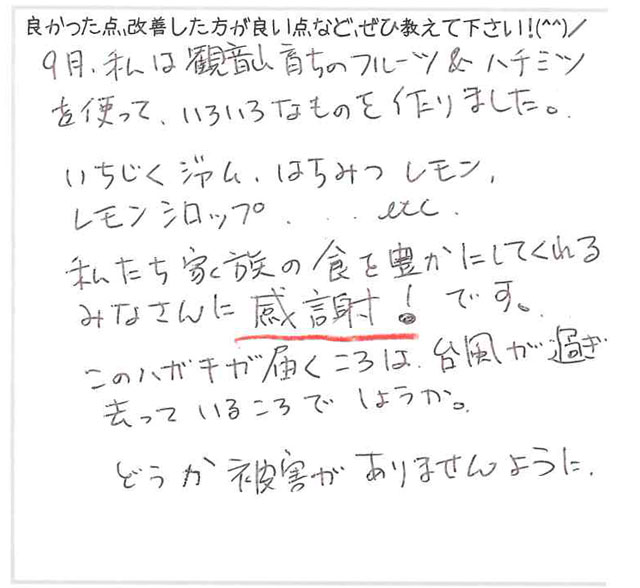 良かった点、改善した方が良い点など、ぜひ教えて下さい!(^^)/
9月、私は観音山育ちのフルーツ&ハチミツ
を使って、いろいろなものを作りました。
いちじくジャム、はちみつレモン、
レモンシロップ...etc.
私たち家族の食を豊かにしてくれる
みなさんに感謝!です。
このハガキが届くころは、台風が過ぎ
去っているころでしょうか。
どうか被害がありませんように。